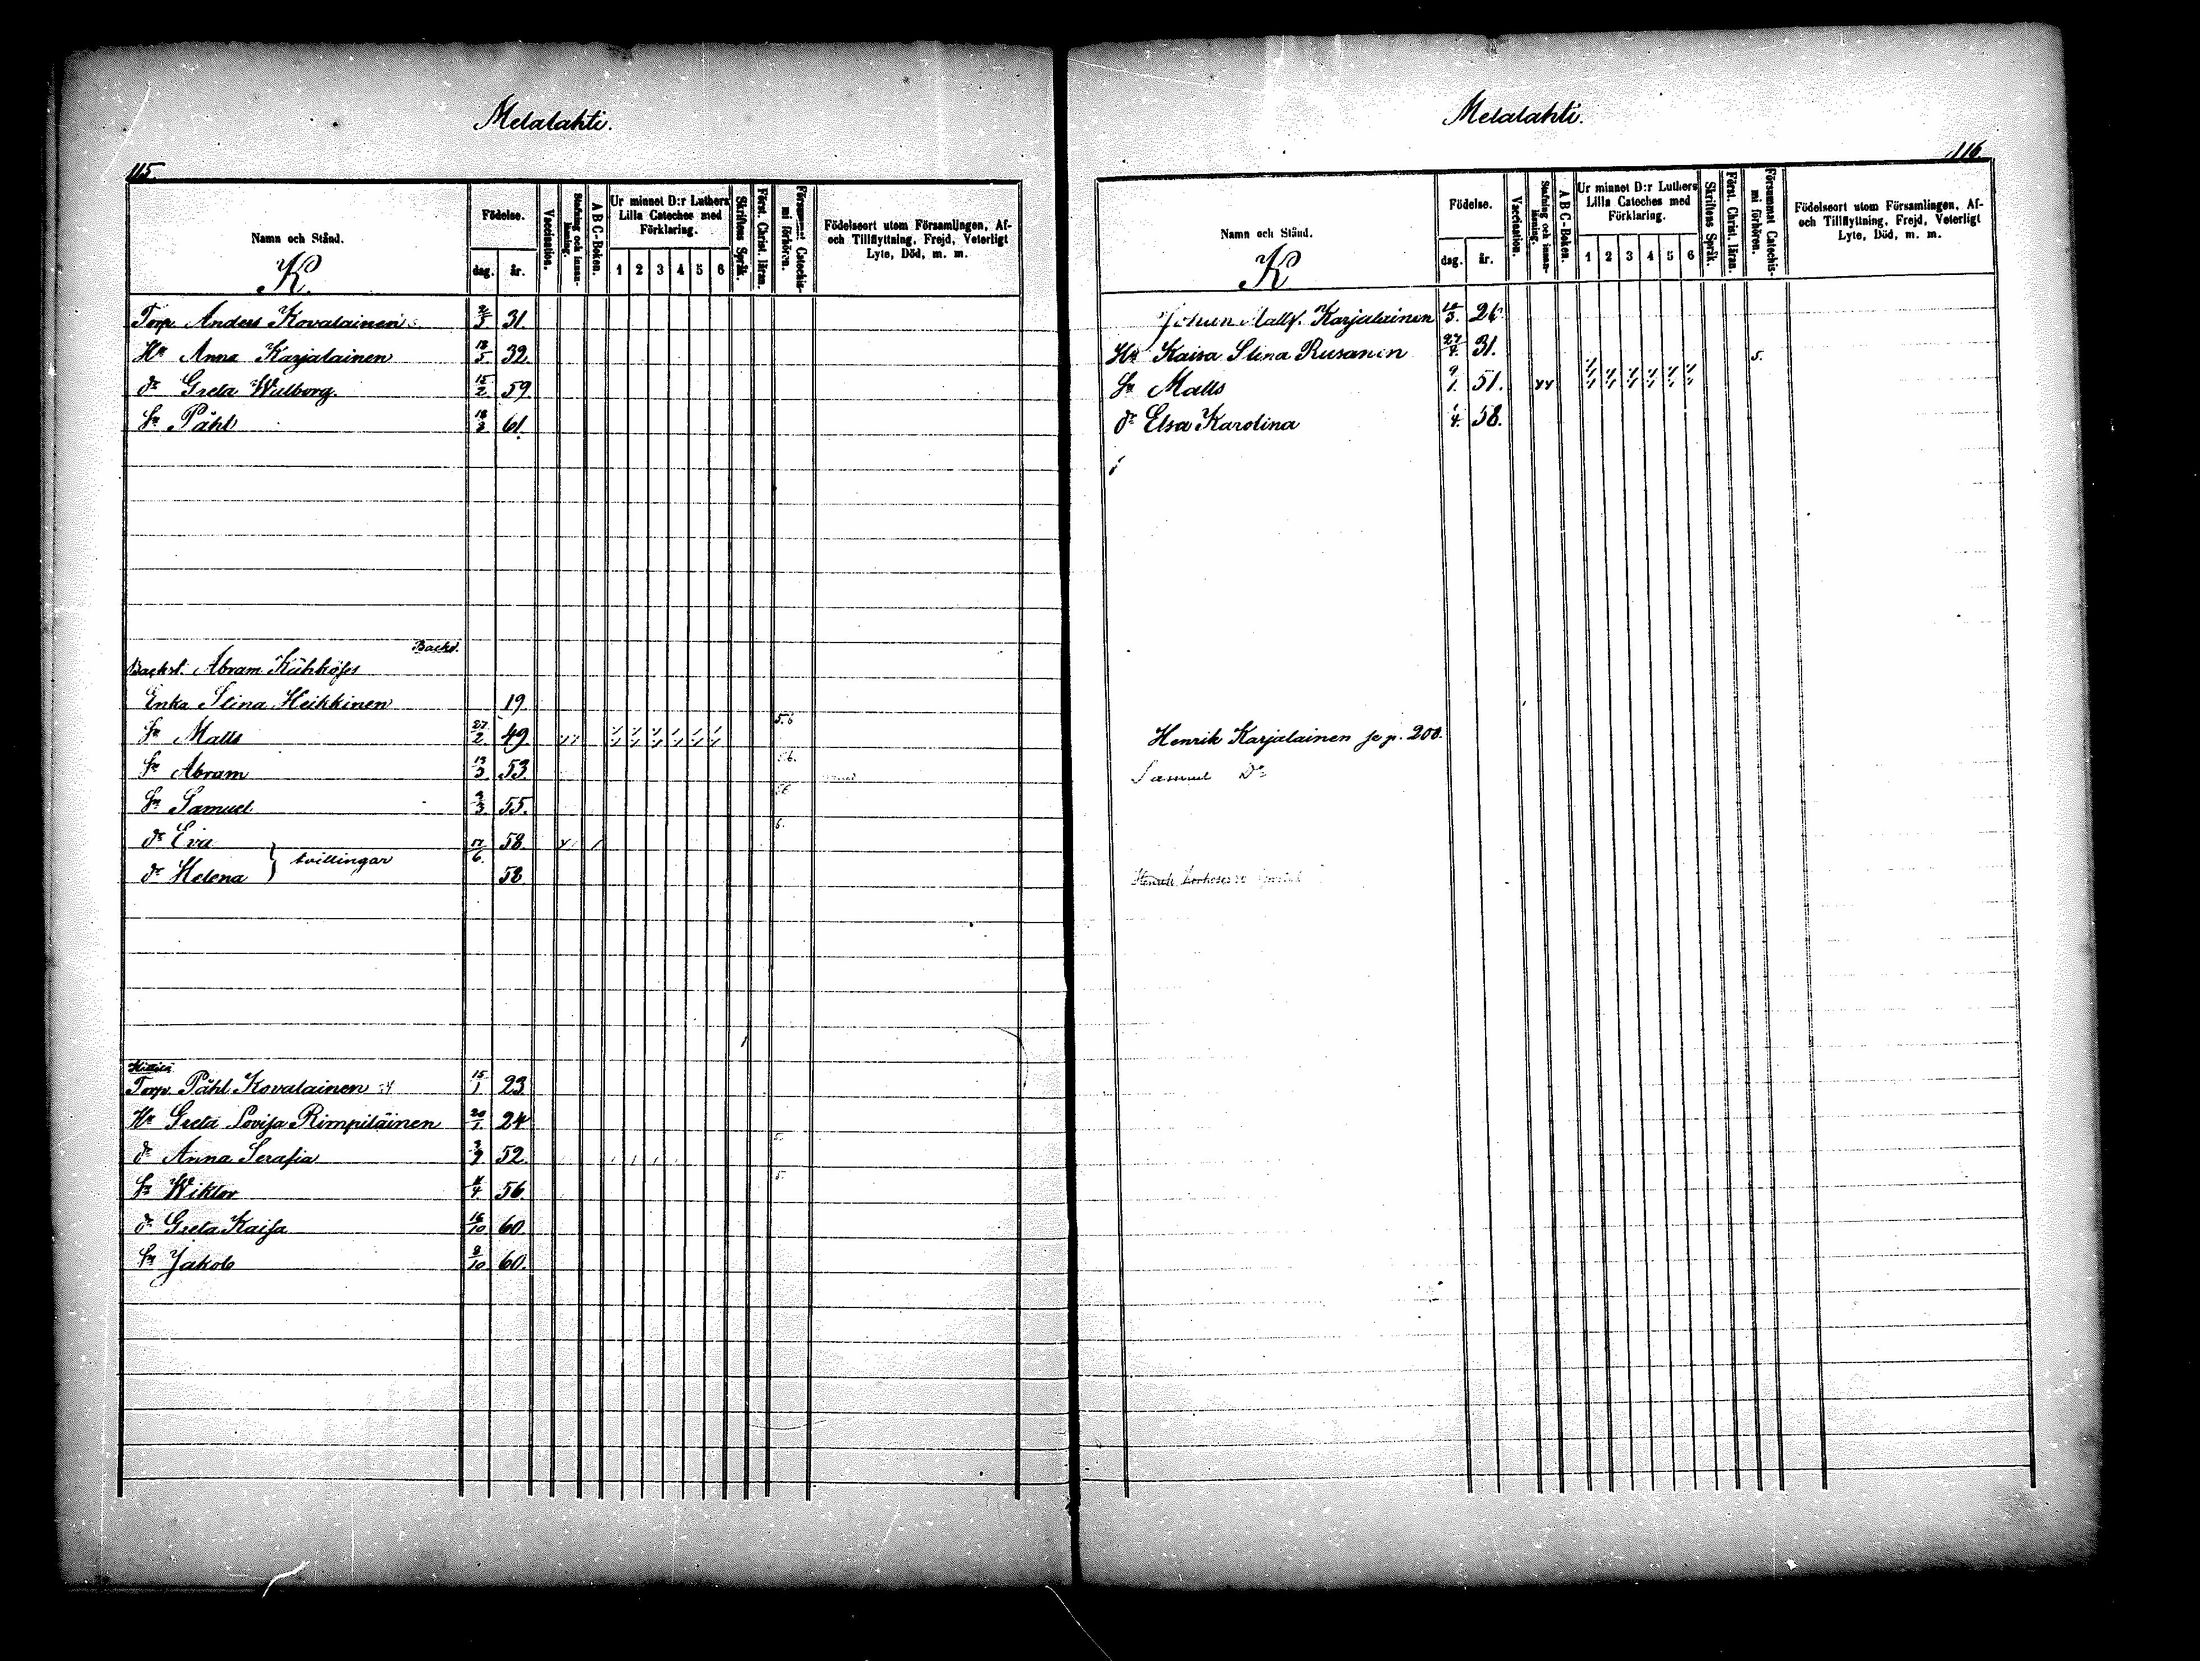 Melalahti.
115.
Namn och Stånd.
K.
Födelse.
dag.
år.
Vaccination.
Stafning och innan-läsning.
A B C-Boken.
Ur minnet D:r Luthers
Lilla Cateches med
Förklaring.
1 2 3 4 5 6
Skriftens Språk.
Först. Christ. läran.
Försummat Catechis-
mi förhören.
Födelseort utom Församlingen, Af-
och Tillflyttning, Frejd, Veterligt
Lyte, Död, m. m.
Torp. Anders Kovalainen 31.
Hu Anna Karjalainen 18/5 32.
dr Greta Walborg. 15/2 59
Sn Påhl 18/3 61.
Backst.
Backst. Abram
Enka Stina Heikkinen 19.
Sn Matts 27/2 49. 5.6
Sn Abram 13/3 53. 5.6.
Sn Samuel 55. 56
dr Eva 12/6. 58. 6.
tvillingar
dr Helena 58
Torp. Påhl Kovalainen 15/1 23
Hu Greta Lovisa Rimpiläinen 20/1 24
dr Anna Serafia 52. 5.
Sn Wiktor 56. 5.
dr Greta Kaisa 16/10 60.
Sn Jakob 9/10 60.
Melalahti.
116.
Namn och Stånd.
K
Födelse.
dag.
år.
Vaccination.
Stafning och innan-läsning.
A B C-Boken.
Ur minnet D:r Luthers
Lilla Cateches med
Förklaring.
1 2 3 4 5 6
Skriftens Språk.
Först. Christ. läran.
Försummat Catechis-
mi förhören.
Födelseort utom Församlingen, Af-
och Tillflyttning, Frejd, Veterligt
Lyte, Död, m. m.
Johan Matts. Karjalainen 26.
Hu Kaisa Stina Rusanen 27/4. 31. 5.
Sn Matts 9/1. 51.
dr Elsa Karolina 1/4. 58.
Henrik Karjalainen se p. 200.
Samuel Do
Henrik